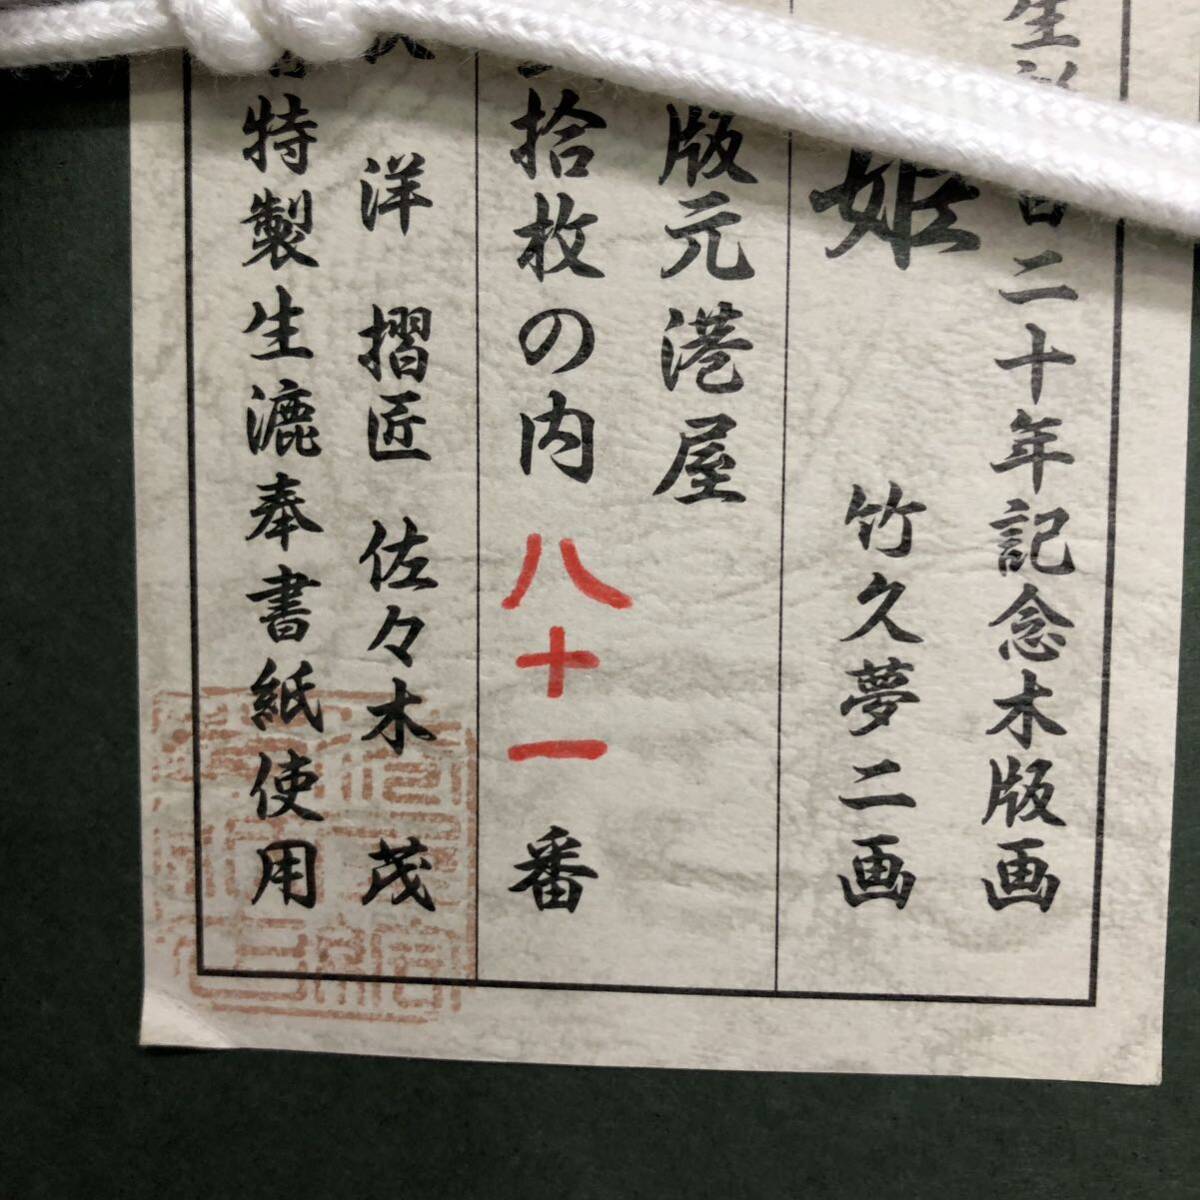 二十年記念木版画
姫 竹久夢二画
版元港屋
拾枚の内 八十一 番
洋 摺匠 佐々木 茂
特製生漉奉書紙使用